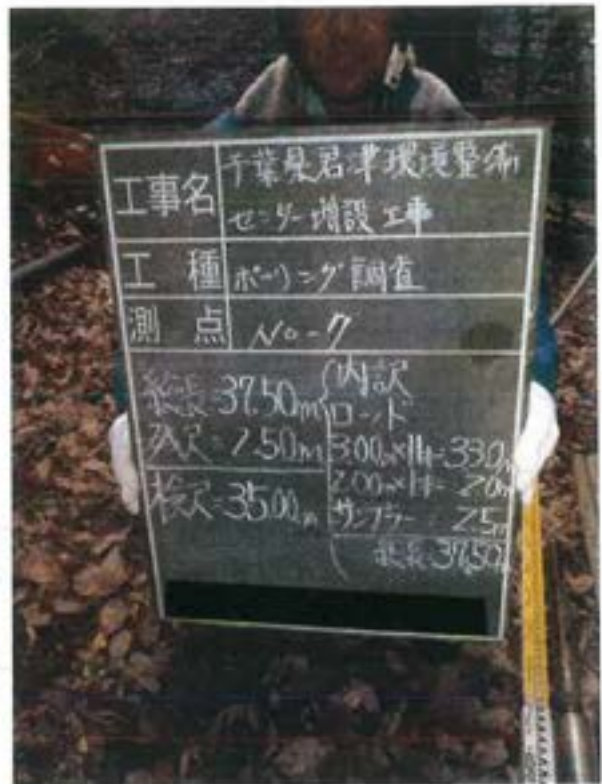 工事名
千葉県君津環境整備
センター増設工事
工種
ボーリング調査
測点
No-7
総長=37.50m
残尺=2.50m
検尺=35.00m
内訳
ロッド
3.00m×11本=33.0m
2.00m×1本=2.0m
サンプラー 2.5m
総長 37.50m